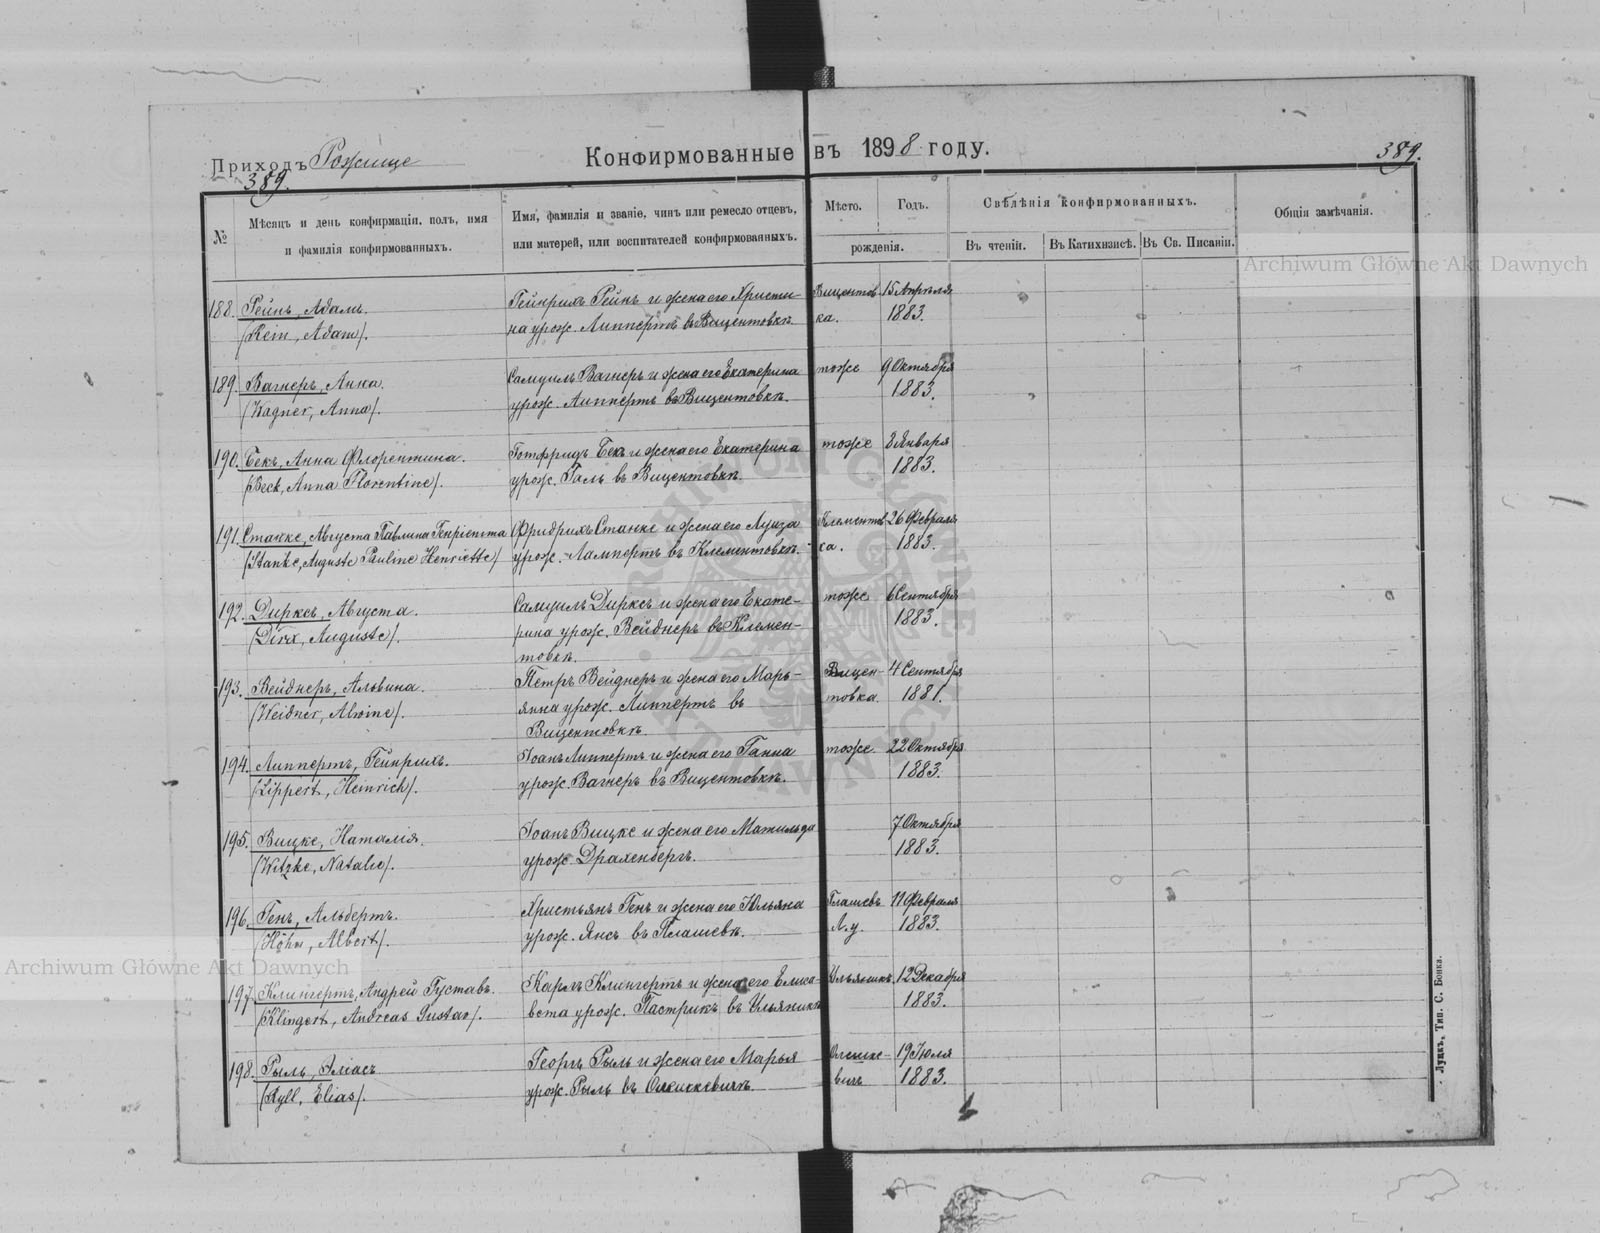 Приходъ Рожище
Конфирмованные въ 1898 году.
389.
389.
№
Мѣсяцъ и день конфирмаціи, полъ, имя
и фамилія конфирмованныхъ.
Имя, фамилія и званіе, чинъ или ремесло отцевъ,
или матерей, или воспитателей конфирмованныхъ.
Мѣсто.
Годъ.
рожденія.
Свѣдѣнія конфирмованныхъ.
Въ чтеніи.
Въ Катихизисѣ.
Въ Св. Писаніи.
Общія замѣчанія.
188. Рейнъ, Адамъ.
(Rein, Adam).
Гейнрихъ Рейнъ и жена его Христи-
на урож. Липпертъ въ Вицентовкѣ.
Вицентов
ка.
15 Апрѣля
1883.
189. Вагнеръ, Анна.
(Wagner, Anna).
Самуилъ Вагнеръ и жена его Екатерина
урож. Липпертъ въ Вицентовкѣ.
тоже
9 Октября
1883.
190. Бекъ, Анна Флорентина.
(Beck, Anna Florentine).
Готфридъ Бекъ и жена его Екатерина
урож. Голь въ Вицентовкѣ.
тоже
3 Января
1883.
191. Станке, Августа Павлина Генріетта
(Stanke, Auguste Pauline Henriette)
Фридрихъ Станке и жена его Луиза
урож. Лампертъ въ Клементовкѣ.
Клементов
ка.
26 Февраля
1883.
192. Дирксъ, Августа.
(Dirx, Auguste).
Самуилъ Дирксъ и жена его Екате-
рина урож. Вейднеръ въ Клемен-
товкѣ.
тоже
6 Сентября
1883.
193. Вейднеръ, Альвина.
(Weidner, Alwine).
Петръ Вейднеръ и жена его Марь-
янна урож. Липпертъ въ
Вицентовкѣ.
Вицен-
товка.
4 Сентября
1881.
194. Липпертъ, Гейнрихъ.
(Lippert, Heinrich).
Іоанъ Липпертъ и жена его Ганна
урож. Вагнеръ въ Вицентовкѣ.
тоже
22 Октября
1883.
195. Вицке, Наталія.
(Witzke, Natalie).
Іоанъ Вицке и жена его Матильда
урож. Драхенбергъ.
7 Октября
1883.
196. Генъ, Альбертъ.
(Höhn, Albert).
Христьянъ Генъ и жена его Юльяна
урож. Янсъ въ Плашевѣ.
Плашевъ
Л. у.
11 Февраля
1883.
197. Клингертъ, Андрей Густавъ.
(Klingert, Andreas Gustav).
Карлъ Клингертъ и жена его Елиса-
вета урож. Пастрикъ въ Ульяникѣ
Ульяникъ.
12 Декабря
1883.
198. Рыль, Эліасъ
(Ryll, Elias).
Георгъ Рыль и жена его Марья
урож. Рыль въ Олешкевичѣ.
Олешке-
вичъ
19 Іюля
1883.
Луцкъ, Тип. С. Бонка.
Archiwum Główne Akt Dawnych
Archiwum Główne Akt Dawnych